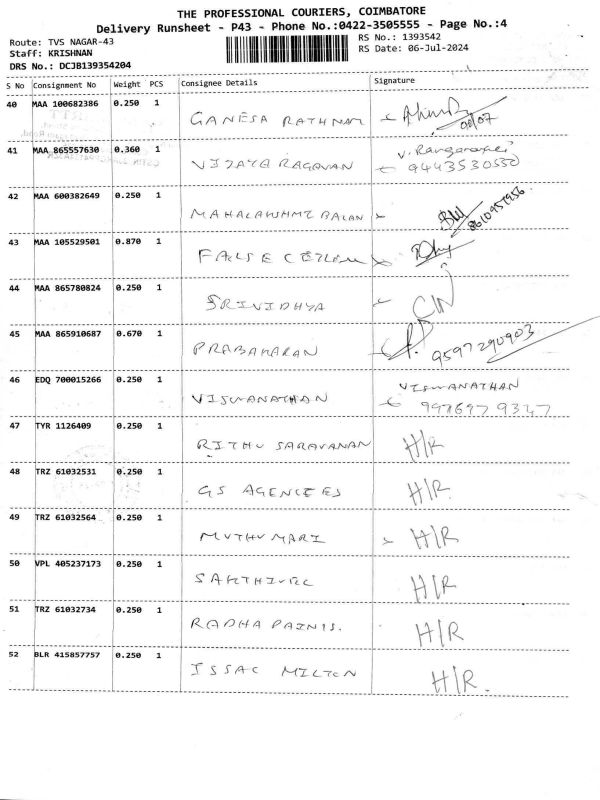 THE PROFESSIONAL COURIERS, COIMBATORE
Delivery Runsheet - P43 - Phone No.:0422-3505555 - Page No.:4
Route: TVS NAGAR-43 RS No.: 1393542
Staff: KRISHNAN RS Date: 06-Jul-2024
DRS No.: DCJB139354204
S No Consignment No Weight PCS Consignee Details Signature
40 MAA 100682386 0.250 1 GANESA RATHNAM
41 MAA 865557630 0.360 1 VIJAYA RAGAVAN
9443530550
42 MAA 600382649 0.250 1 MAHALAKSHMI BALAN
43 MAA 105529501 0.870 1 FALSE
44 MAA 865780824 0.250 1 SRIVIDHYA
45 MAA 865910687 0.670 1 PRABAKARAN 9597290903
46 EDQ 700015266 0.250 1 VISWANATHAN VISWANATHAN
9976979347
47 TYR 1126409 0.250 1 RITHU SARAVANAN H/R
48 TRZ 61032531 0.250 1 GS AGENCIES H/R
49 TRZ 61032564 0.250 1 MUTHU MARI H/R
50 VPL 405237173 0.250 1 SAKTHIVEL H/R
51 TRZ 61032734 0.250 1 RADHA PAINTS. H/R
52 BLR 415857757 0.250 1 ISSAC MILTON H/R.